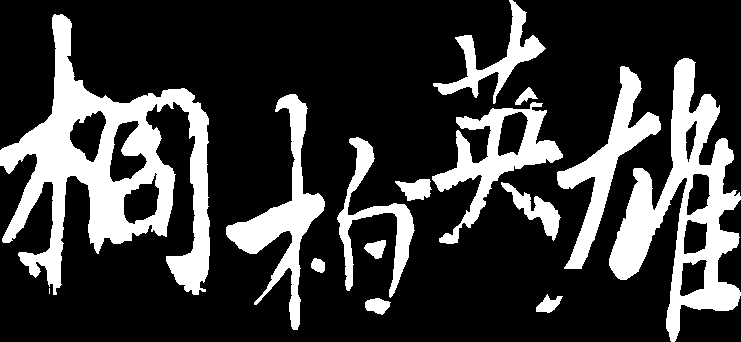 桐柏英雄